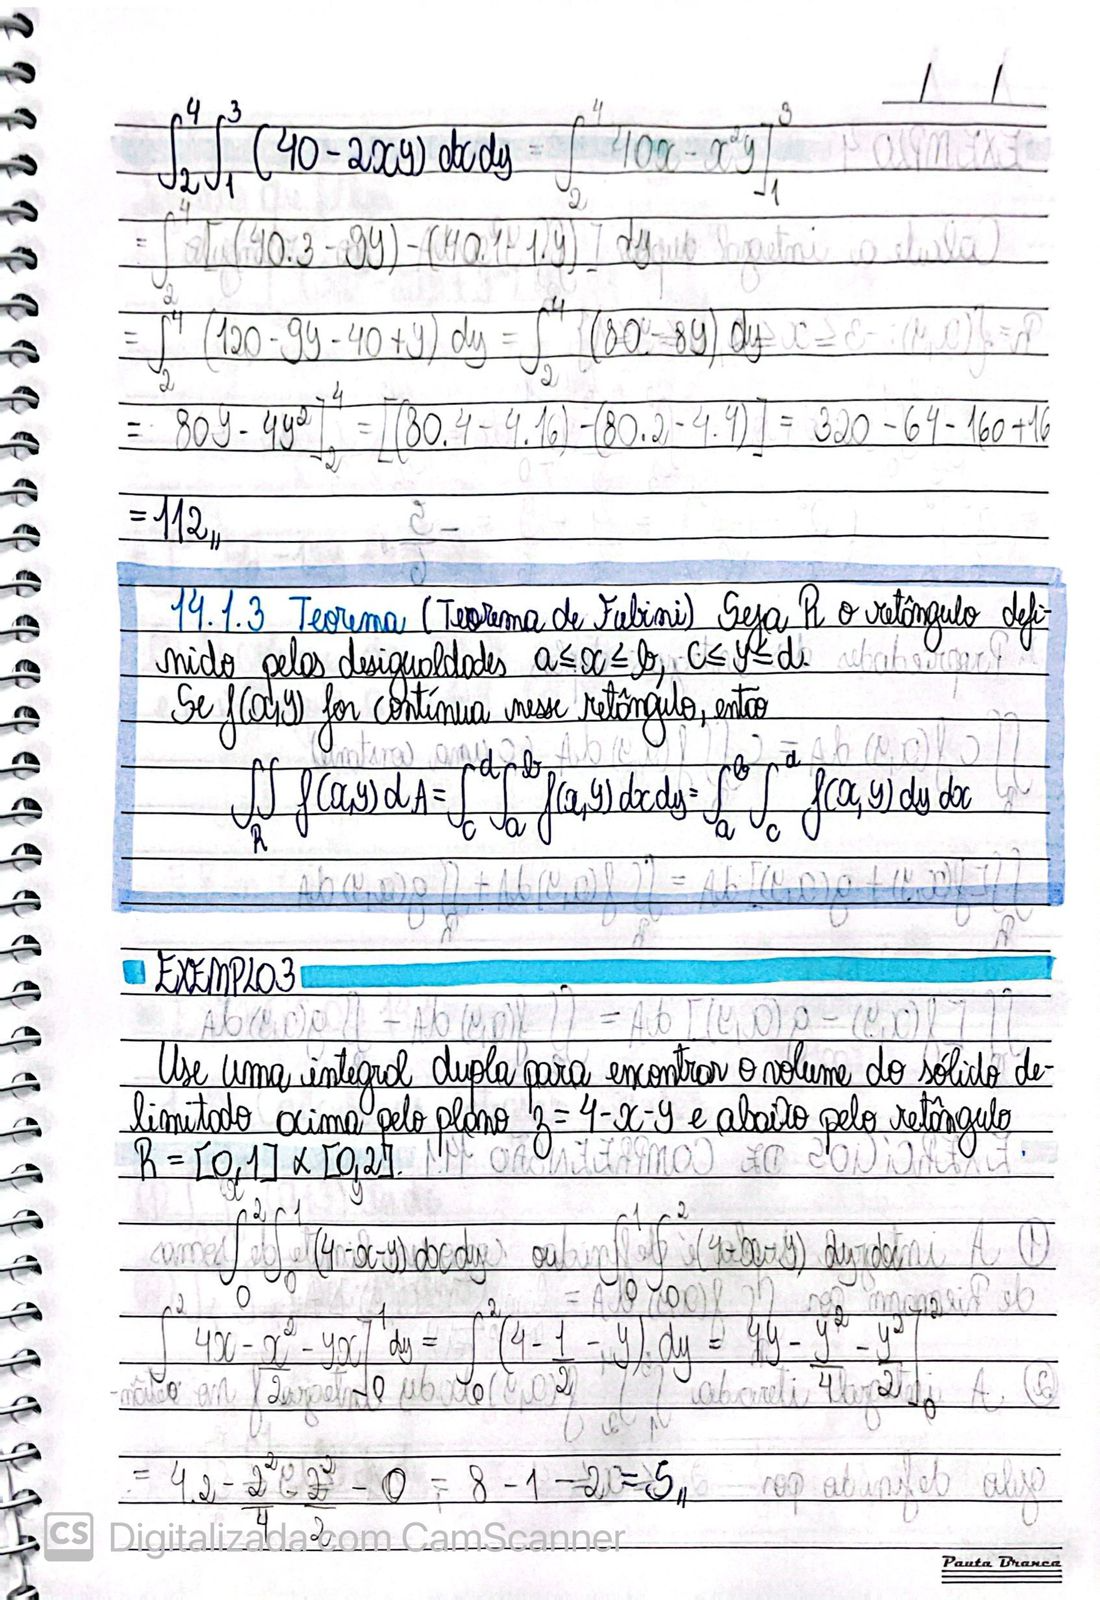 / /
∫₂⁴ ∫₁³ (40 - 2xy) dx dy = ∫₂⁴ 40x - x²y]₁³
= ∫₂⁴ [(40.3 - 9y) - (40.1 - 1.y)] dy
= ∫₂⁴ (120 - 9y - 40 + y) dy = ∫₂⁴ (80 - 8y) dy
= 80y - 4y²]₂⁴ = [(80.4 - 4.16) - (80.2 - 4.4)] = 320 - 64 - 160 + 16
= 112,,
14.1.3 Teorema (Teorema de Fubini) Seja R o retângulo defi-
nido pelas desigualdades a ≤ x ≤ b, c ≤ y ≤ d.
Se f(x,y) for contínua nesse retângulo, então
∬_R f(x,y) dA = ∫_c^d ∫_a^b f(x,y) dx dy = ∫_a^b ∫_c^d f(x,y) dy dx
EXEMPLO 3
Use uma integral dupla para encontrar o volume do sólido de-
limitado acima pelo plano z = 4 - x - y e abaixo pelo retângulo
R = [0,1] x [0,2].
x y
∫₀² ∫₀¹ (4 - x - y) dx dy ou ∫₀¹ ∫₀² (4 - x - y) dy dx
∫₀² 4x - x²/2 - yx]₀¹ dy = ∫₀² (4 - 1/2 - y) dy = 4y - y²/4 - y²/2]₀²
= 4.2 - 2²/4 - 2²/2 - 0 = 8 - 1 - 2 = 5,,
CS Digitalizada com CamScanner
Pauta Branca